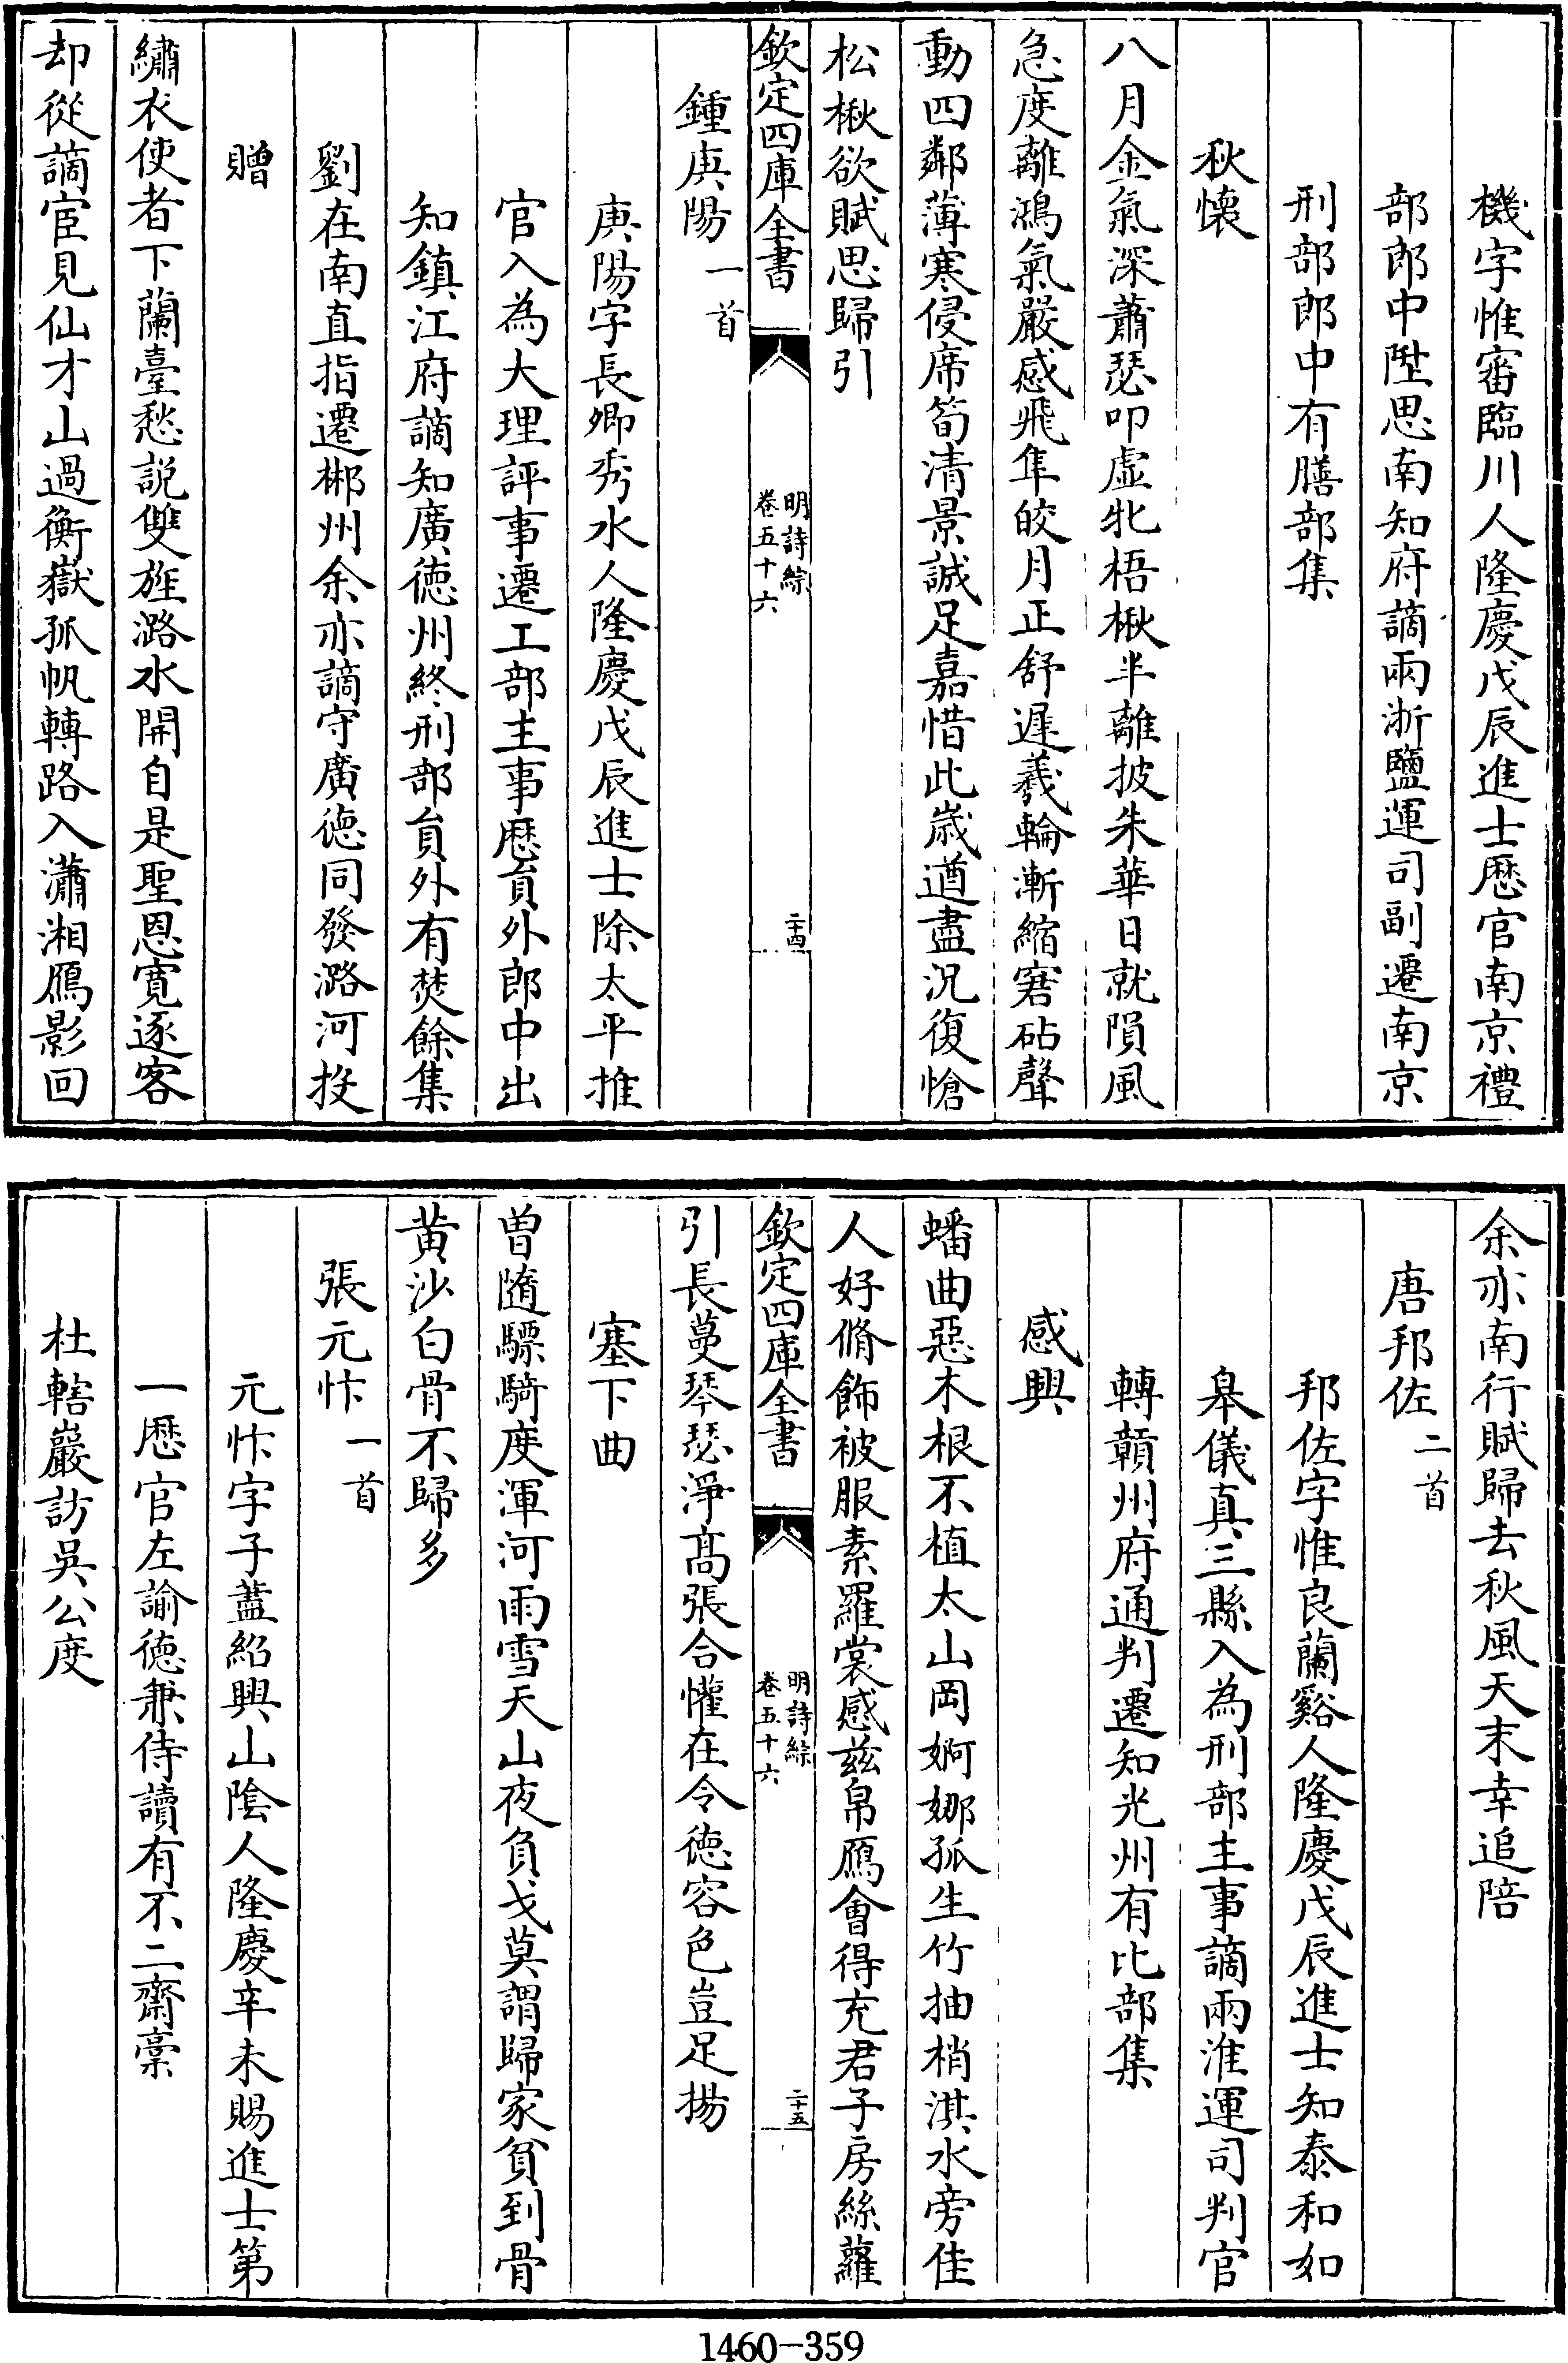 機字惟審臨川人隆慶戊辰進士歴官南京禮
部郎中陞思南知府謫兩浙鹽運司副遷南京
刑部郎中有膳部集
秋懷
八月金氣深蕭瑟叩虛牝梧楸半離披朱華日就隕風
急度離鴻氣嚴感飛隼皎月正舒遲羲輪漸縮窘砧聲
動四鄰薄寒侵席筍清景誠足嘉惜此歳遒盡況復愴
松楸欲賦思歸引
欽定四庫全書
明詩綜
卷五十六
二十四
鍾庚陽 一首
庚陽字長卿秀水人隆慶戊辰進士除太平推
官入為大理評事遷工部主事歴員外郎中出
知鎮江府謫知廣徳州終刑部員外有焚餘集
劉在南直指遷郴州余亦謫守廣徳同發潞河投
贈
繡衣使者下蘭臺愁説雙旌潞水開自是聖恩寛逐客
却從謫宦見仙才山過衡嶽孤帆轉路入瀟湘鴈影回
余亦南行賦歸去秋風天末幸追陪
唐邦佐 二首
邦佐字惟良蘭谿人隆慶戊辰進士知泰和如
皋儀真三縣入為刑部主事謫兩淮運司判官
轉贛州府通判遷知光州有比部集
感興
蟠曲惡木根不植太山岡婀娜孤生竹抽梢淇水旁佳
人好脩飾被服素羅裳感兹帛鴈會得充君子房絲蘿
欽定四庫全書
明詩綜
卷五十六
二十五
引長蔓琴瑟淨髙張合懽在令徳容色豈足揚
塞下曲
曽隨驃騎度渾河雨雪天山夜負戈莫謂歸家貧到骨
黄沙白骨不歸多
張元忭 一首
元忭字子藎紹興山陰人隆慶辛未賜進士第
一歴官左諭徳兼侍讀有不二齋稾
杜轄巖訪吳公度
1460-359